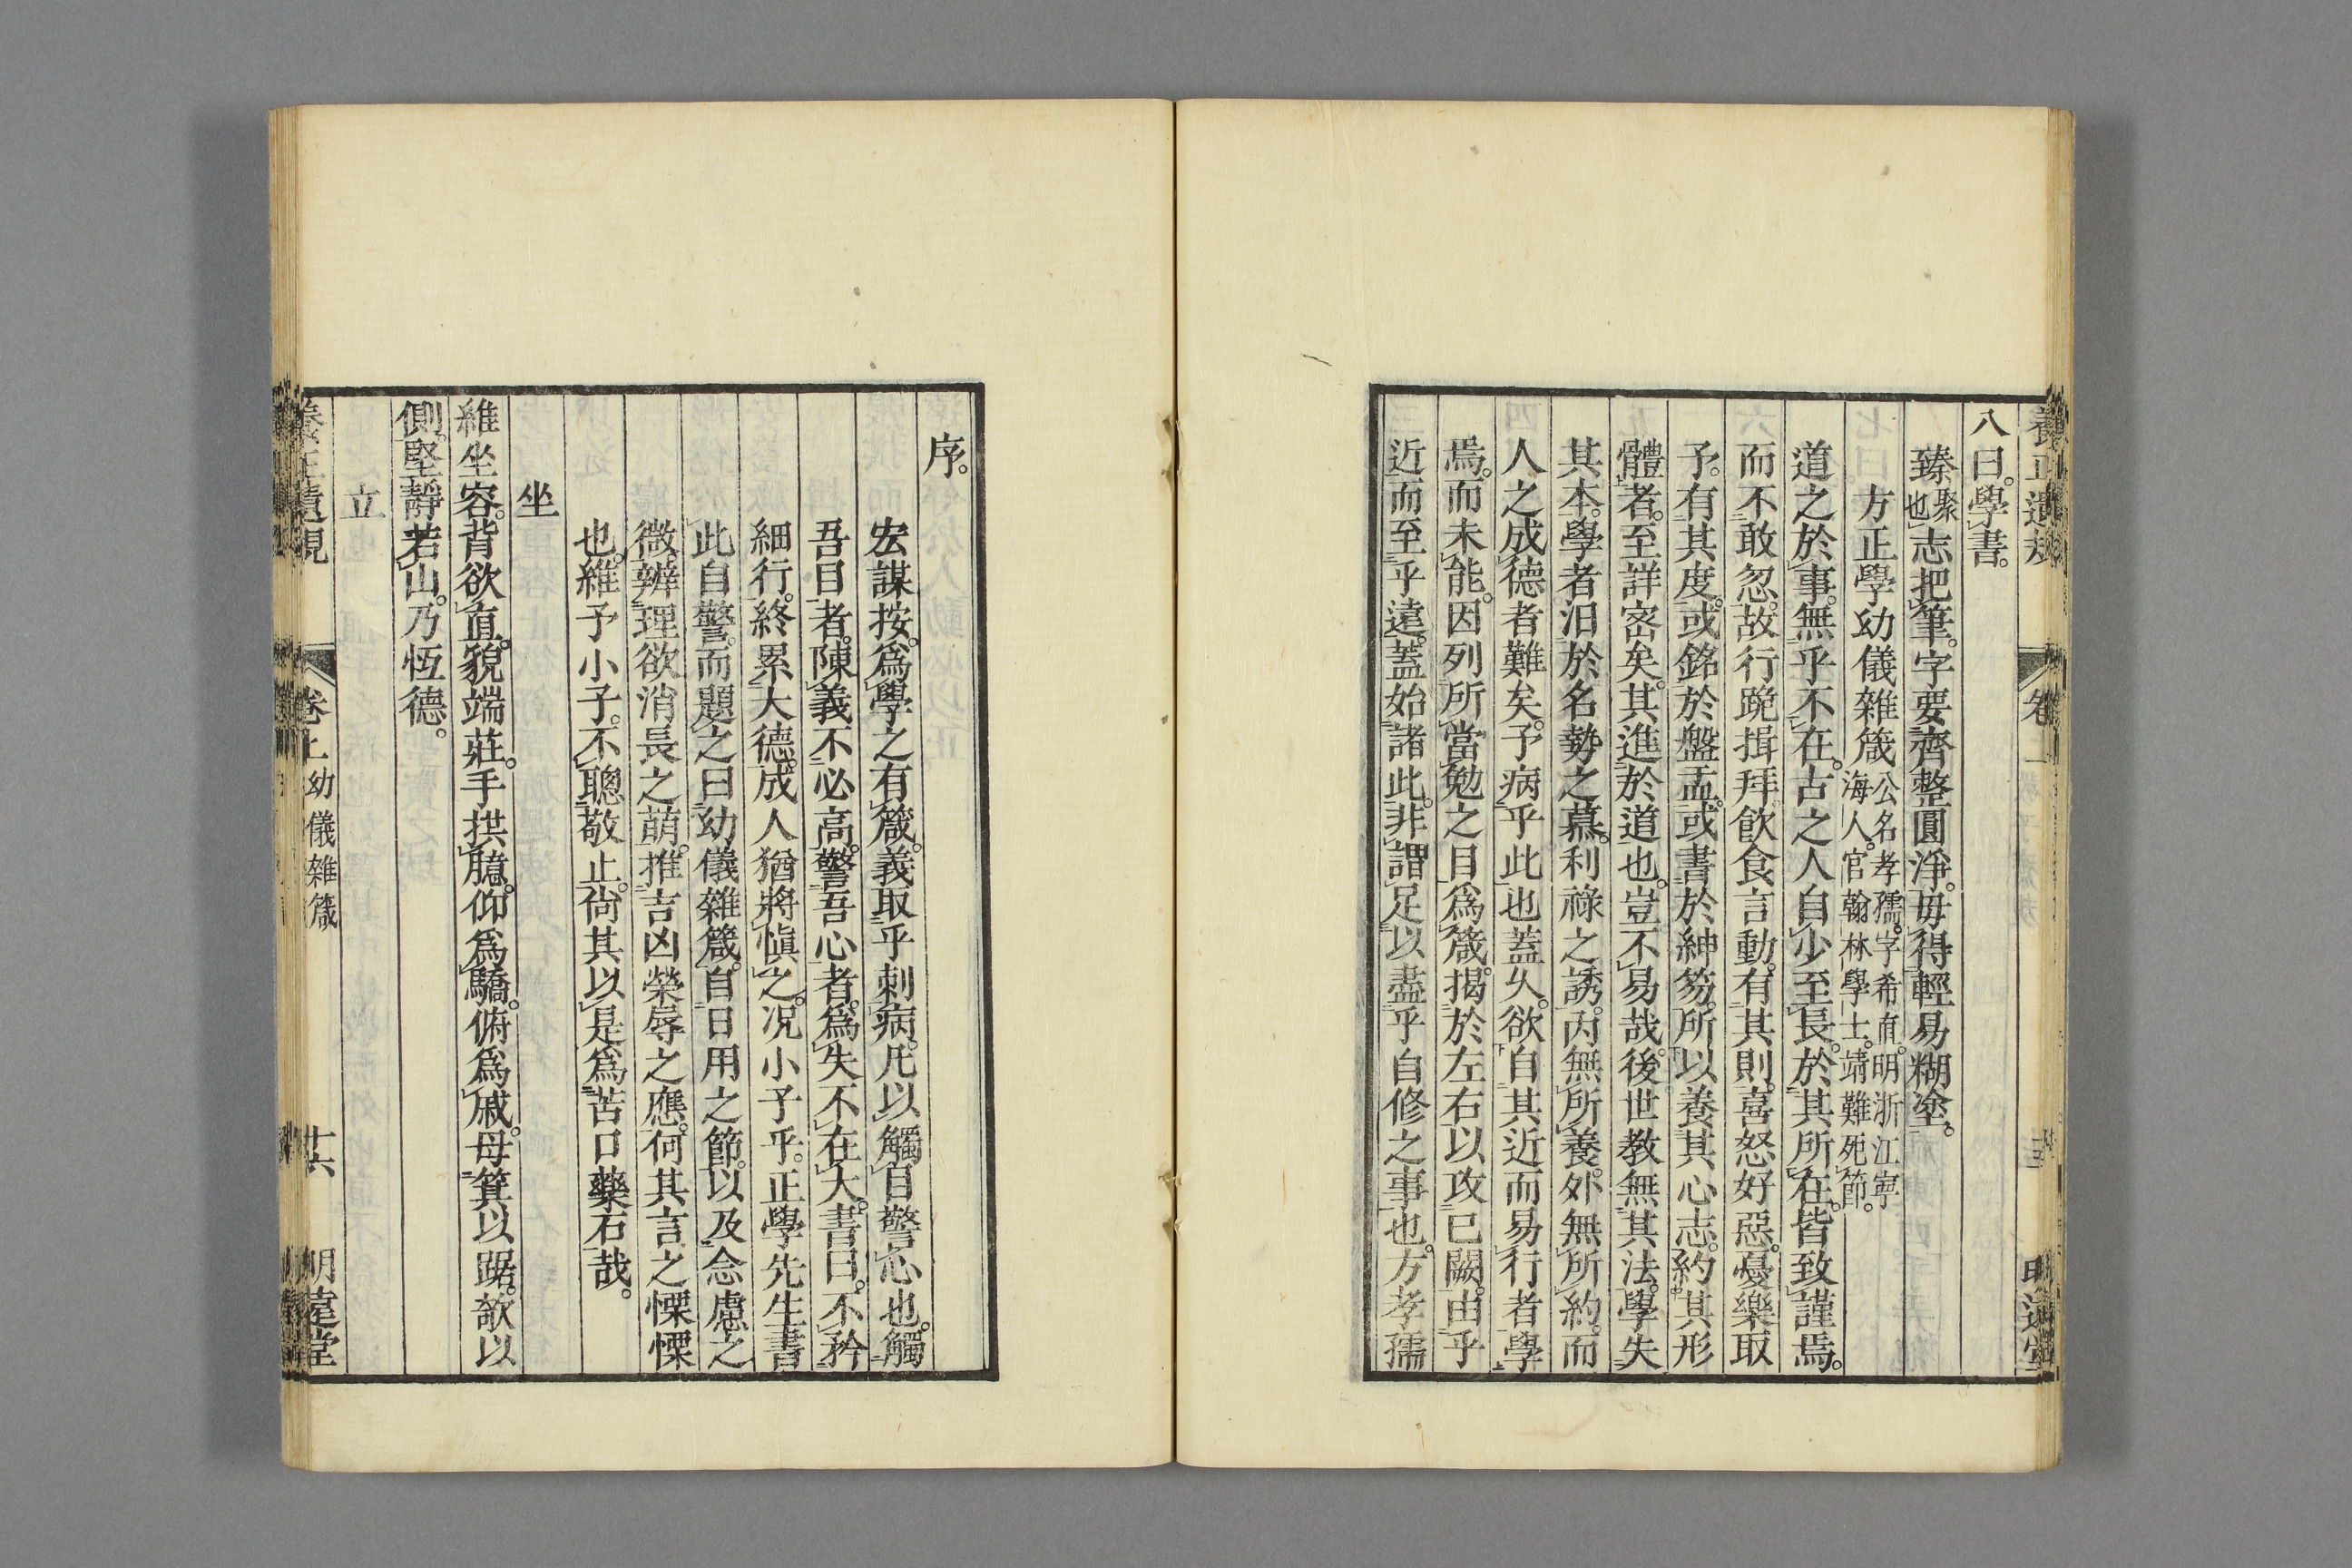 養正遺規
卷上
明遠堂
八曰。學書。
臻聚也志把筆。字要齊整圓淨。毋得輕易糊塗。
方正學幼儀雜箴公名孝孺。字希直。明浙江寧海人。官翰林學士。靖難死節。
道之於事。無乎不在。古之人自少至長。於其所在。皆致謹焉。
而不敢忽。故行跪揖拜飲食言動。有其則。喜怒好惡。憂樂取
予。有其度。或銘於盤盂。或書於紳笏。所以養其心志。約其形
體者。至詳密矣。其進於道也。豈不易哉。後世教無其法。學失
其本。學者汨於名勢之慕。利祿之誘。內無所養。外無所約。而
人之成德者難矣。予病乎此也蓋久。欲自其近而易行者學
焉。而未能。因列所當勉之目為箴。揭於左右以攻己闕。由乎
近而至乎遠。蓋始諸此。非謂足以盡乎自修之事也。方孝孺
序。
宏謀按。為學之有箴。義取乎刺病。凡以觸目警心也。觸
吾目者。陳義不必高。警吾心者。為失不在大。書曰。不矜
細行。終累大德。成人猶將慎之。況小子乎。正學先生書
此自警。而題之曰幼儀雜箴。自日用之節。以及念慮之
微。辨理欲消長之萌。推吉凶榮辱之應。何其言之慄慄
也。維予小子。不聰敬止。尙其以是為苦口藥石哉。
坐
維坐容。背欲直。貌端莊。手拱臆。仰為驕。俯為戚。毋箕以踞。欹以
側。堅靜若山。乃恆德。
立
養正遺規
卷上幼儀雜箴
廿六
明遠堂